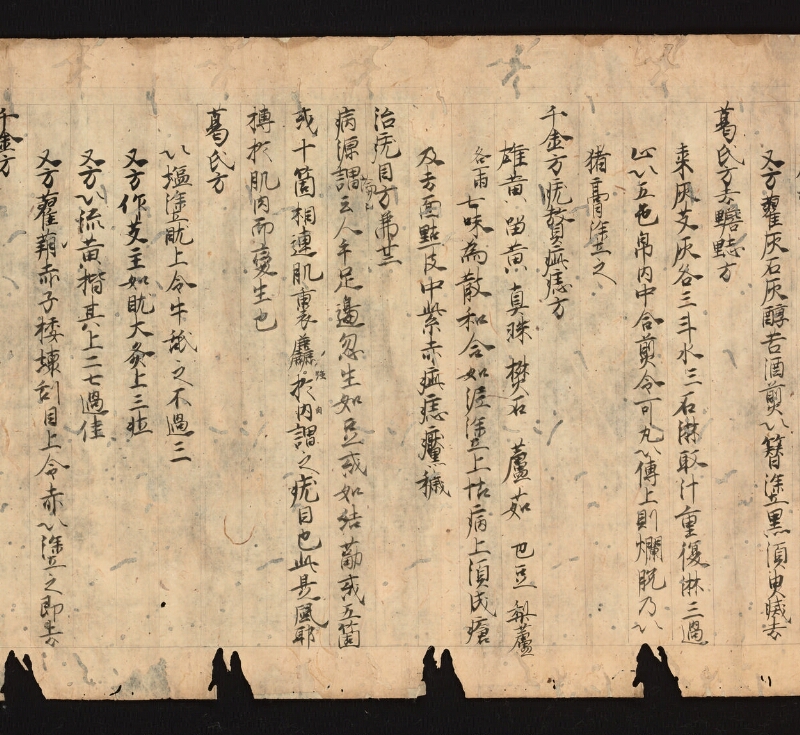 又方藋灰石灰醇苦酒煎以簪塗黒須臾滅去
葛氏方去黶誌方
桒灰艾灰各三斗水三石淋取汁重復淋三過
止以五色帛内中合煎令可丸以傅上則爛脱乃以
猪膏塗之
千金方疣贅疵痣方
雄黄 留黄 真珠 樊石 蘆茹 巴豆 梨蘆
各一兩 七味為散和合如泥塗上怗病上須成瘡
及去面點皮中紫赤疵痣靨穢
治疣目方苐廿
病源謂云人手足邊忽生如豆或如結筋或五箇
或十箇相連肌裏麤於内謂之疣目也此是風耶
摶於肌肉而變生也
葛氏方
以塩塗肬上令牛舐之不過三
又方作艾主如肬大灸上三壮
又方以流黄揩其上二七過佳
又方藋蒴赤子挼壊刮目上令赤以塗之即去
千金方